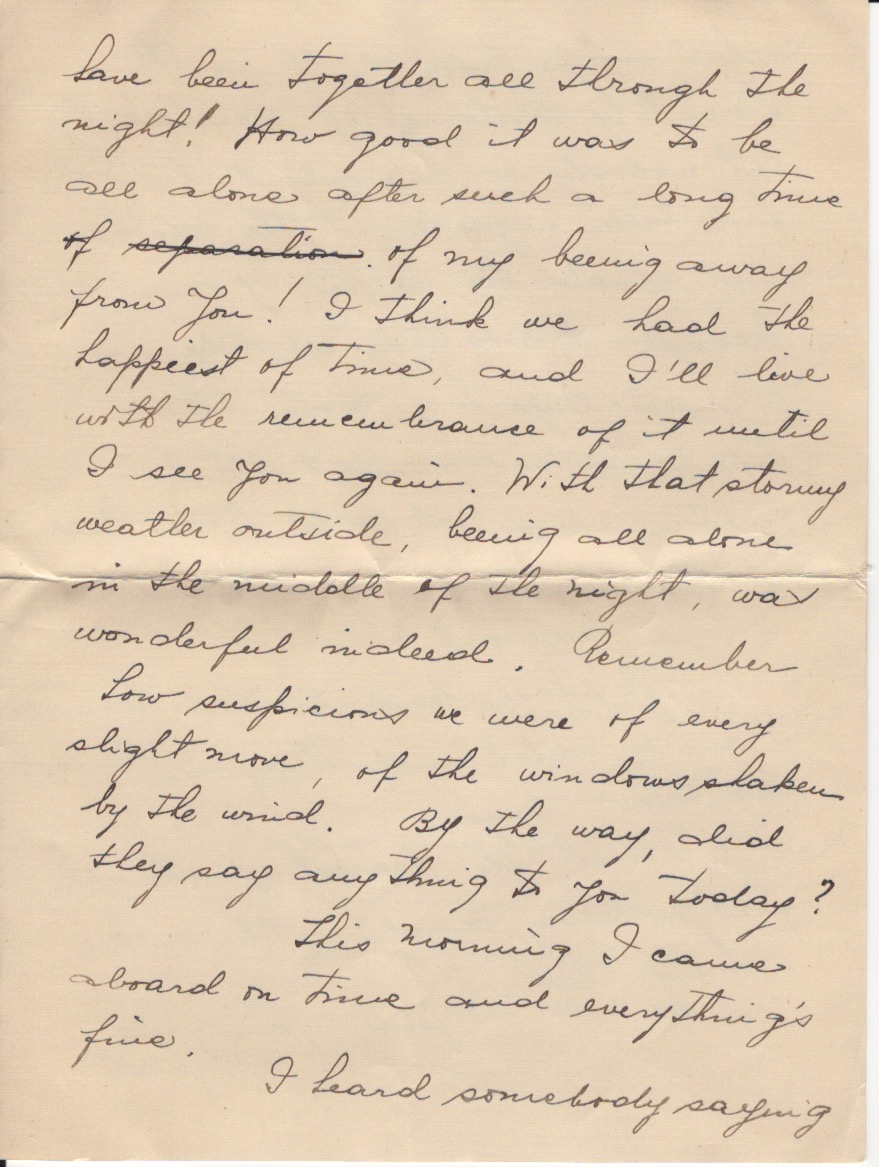 have been together all through the
night! How good it was to be
all alone after such a long time
of separation. of my beeing away
from You! I think we had the
happiest of time, and I'll live
with the remembrance of it until
I see You again. With that stormy
weather outside, beeing all alone
in the middle of the night, was
wonderful indeed. Remember
how suspicions we were of every
slight move, of the windows shaken
by the wind. By the way, did
they say anything to You today?
This morning I came
aboard on time and everything's
fine.
I heard somebody saying